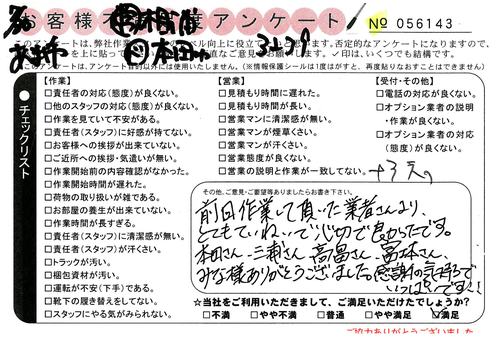 お客様不満足度アンケート
No 056143
お客様の声
【作業】
□責任者の対応(態度)が良くない。
□他のスタッフの対応(態度)が良くない。
□作業を見ていて不安がある。
□責任者(スタッフ)に好感が持てない。
□お客様への挨拶が出来ていない。
□ご近所への挨拶・気遣いが無い。
□作業開始前の内容確認がなかった。
□作業開始時間が遅れた。
□荷物の取り扱いが雑である。
□お部屋の養生が出来ていない。
□作業時間が長すぎる。
□責任者(スタッフ)に清潔感が無い。
□責任者(スタッフ)が汗くさい。
□トラックが汚い。
□梱包資材が汚い。
□運転が不安(下手)である。
□靴下の履き替えをしてない。
□スタッフにやる気がみられない。
チェックリスト
【営業】
□見積もりに遅れた。
□見積もり時間が長い。
□営業マンに清潔感が無い。
□営業マンが煙草くさい。
□営業マンが汗くさい。
□営業態度が良くない。
□営業の説明と作業が一致してない。
【受付・その他】
□電話の対応が良くない。
□オプション業者の説明
・作業が良くない。
□オプション業者の対応
(態度)が良くない。
その他、ご意見・ご要望等ありましたらお書き下さい。
前回作業して頂いた業者さんより、
とてもていねいで、いい仕事で良かったです。
本田さん、三浦さん、高畠さん、冨本さん、
みな様ありがとうございました。感謝の気持ちで
いっぱいです!!
☆当社をご利用いただきまして、ご満足いただけたでしょうか?
□不満 □やや不満 □普通 □やや満足 ☑満足
ご協力ありがとうございました